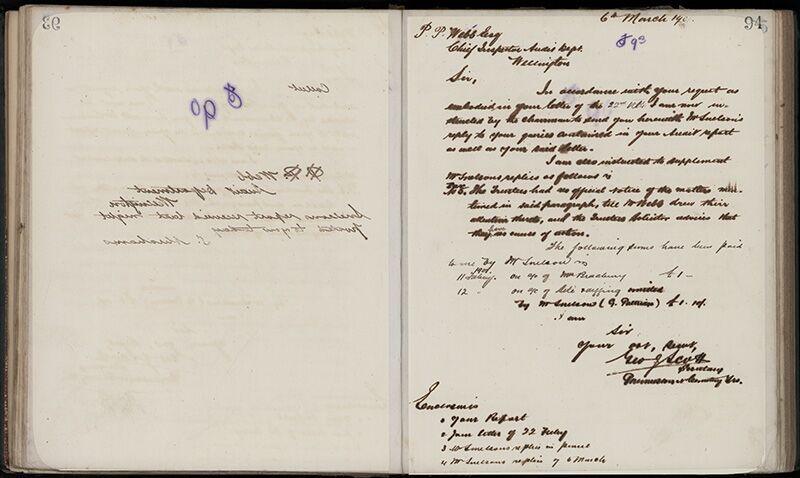 93
P. P. Webb
Audit Department
Wellington
report received last night
to you today
94
6th March
93
P. P. Webb Esq
Chief Inspector Audit Dept.
Wellington
Sir,
In accordance with your request as
embodied in your letter of the 22nd I am now in-
structed by the chairman to send you herewith Mr Snelson's
reply to your queries contained in your Audit report
as well as your said letter.
I am also instructed to supplement
Mr Snelsons replies as follows
The Trustees had no official Notice of the matters men-
tioned in said paragraph, till Mr Webb drew their
attention thereto, and the Trustees Solicitor advises that
they have no cause of action.
The following sums have been paid
to me by Mr Snelson
11 on a/c of Mrs £1 –
12 " on a/c of late omitted
by Mr Snelson £1.
I am
Sir
Your obt,
Geo J Scott
Secretary
Enclosures
1 Your Report
2 Your letter of 22 Feby
3 Mr Snelsons replies in pencil
4 Mr Snelsons replies of 6 March